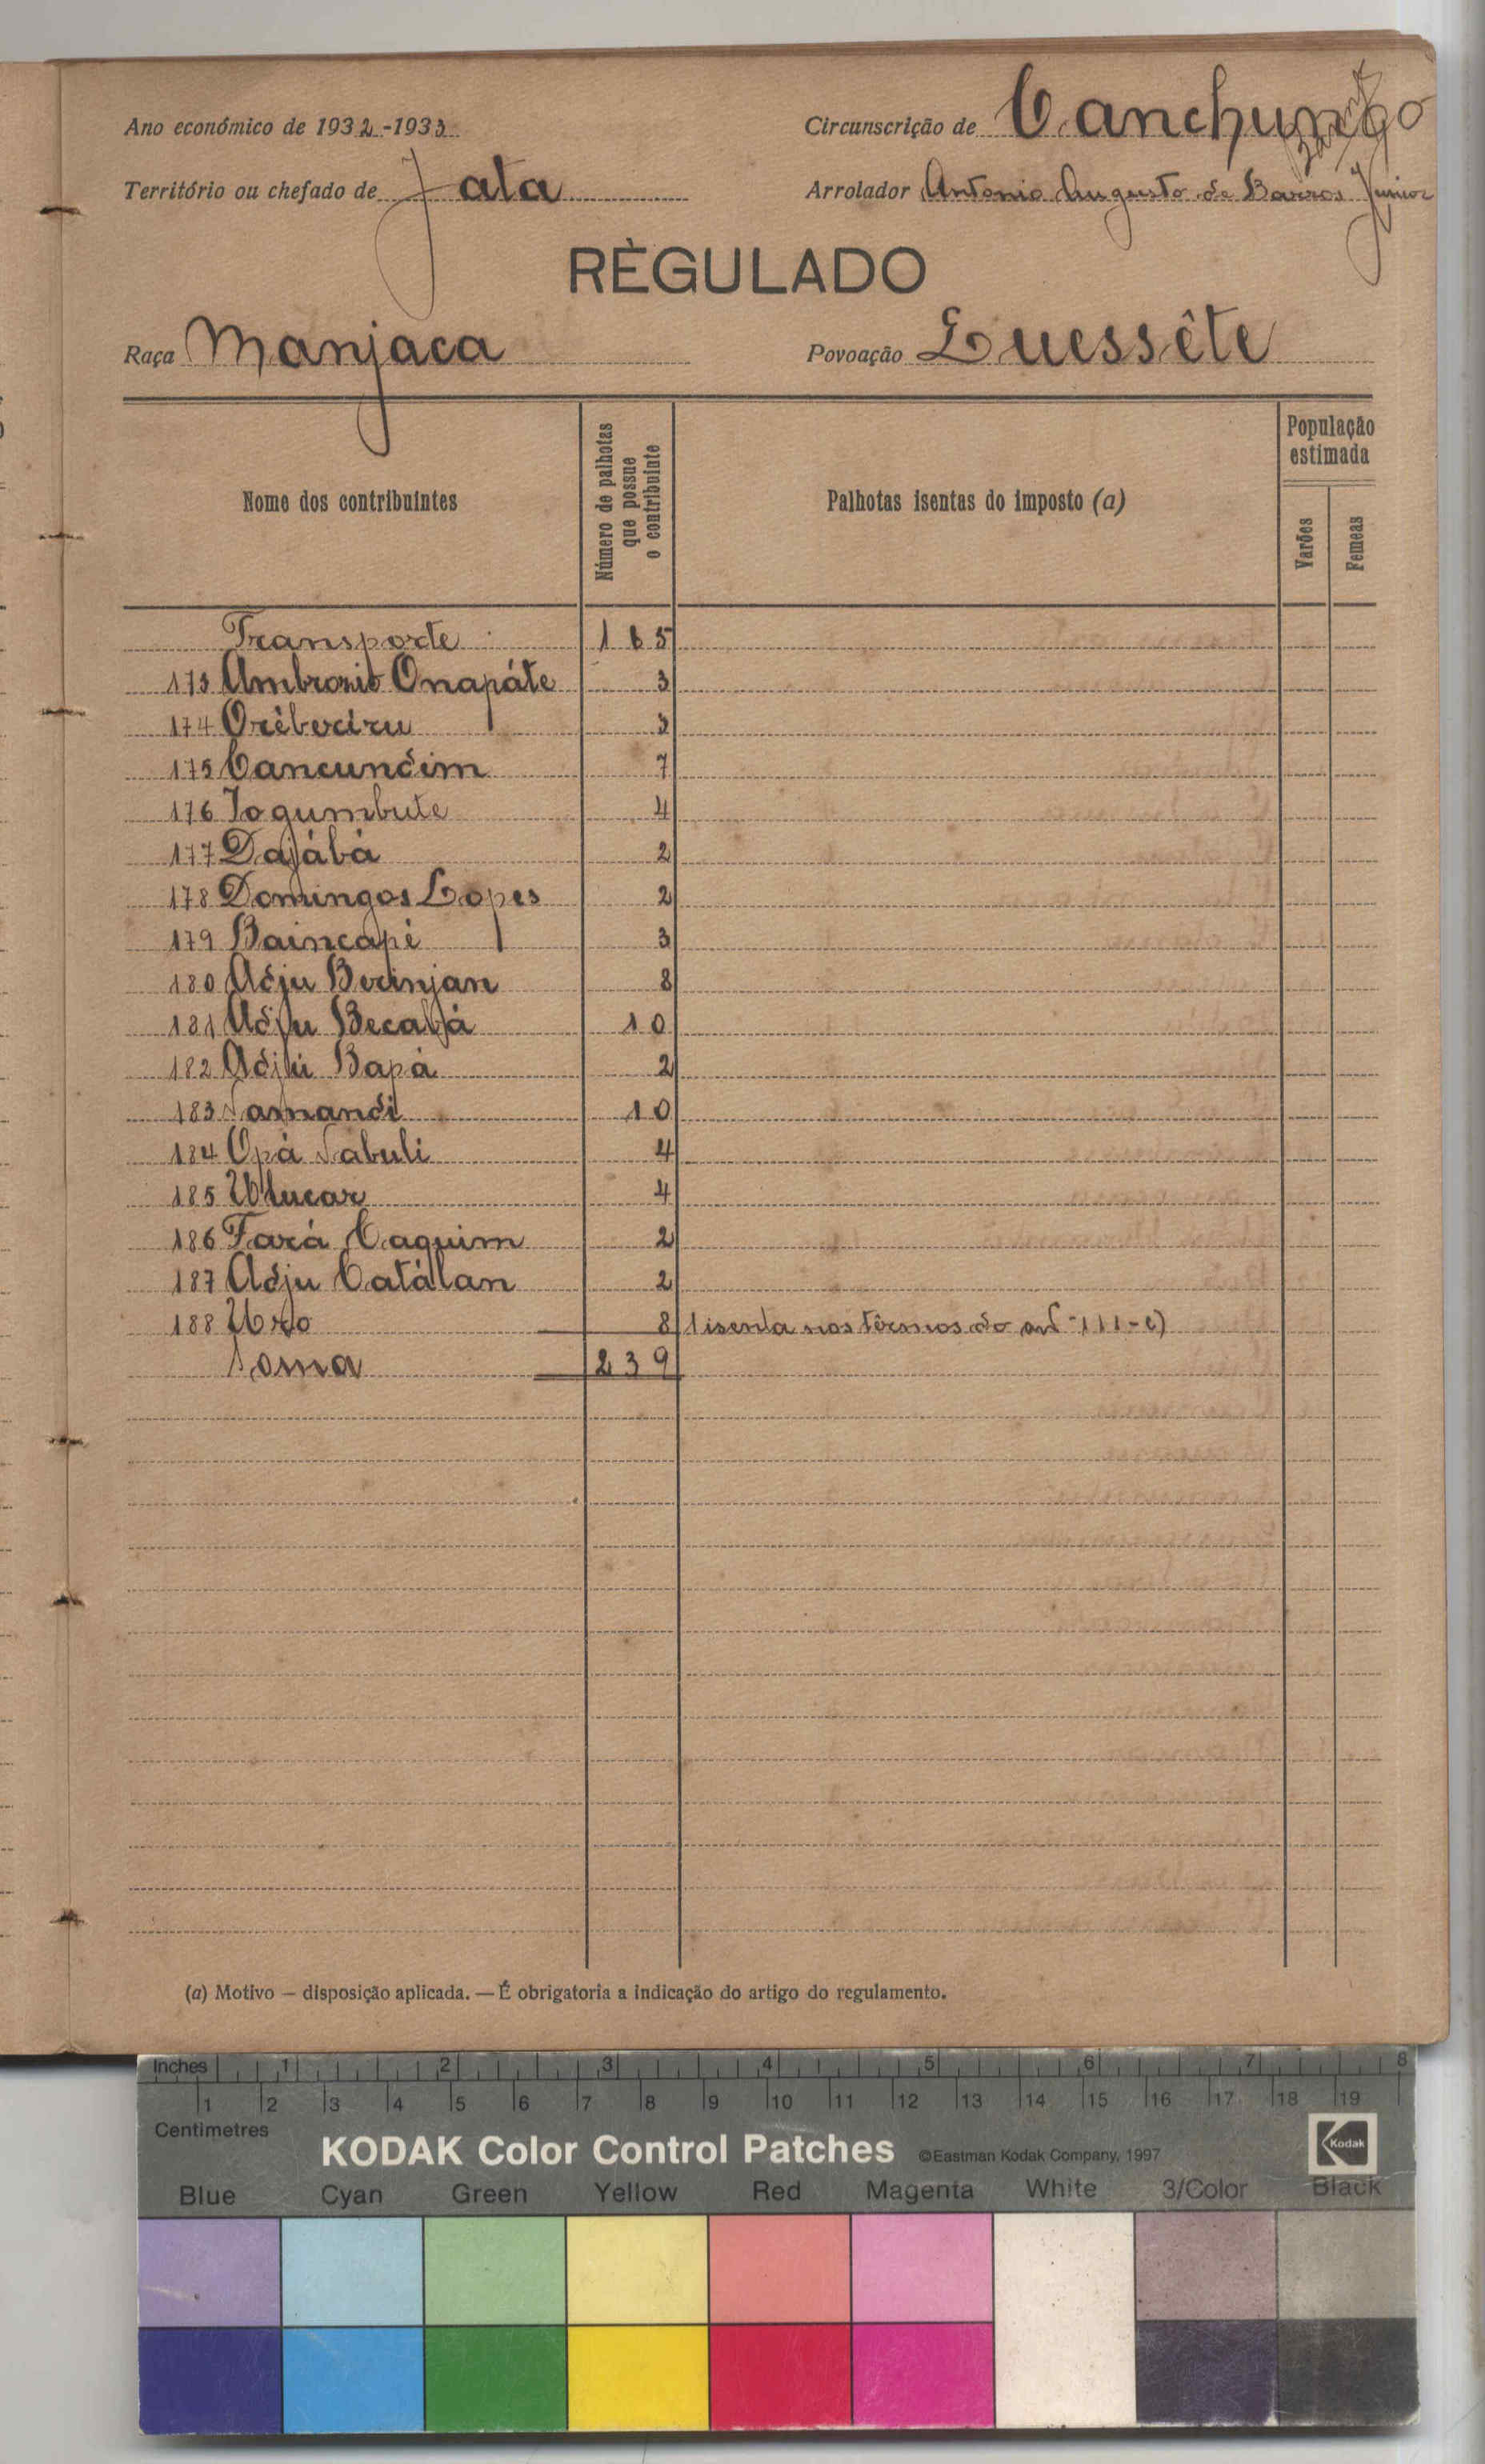 Ano económico de 1932-1933
Circunscrição de Canchungo
Território ou chefado de Jata
Arrolador Antonio Augusto de Barros Junior
RÈGULADO
Raça Manjaca
Povoação Luessête
Nome dos contribuintes
Número de palhotas que possue o contribuinte
Palhotas isentas do imposto (a)
População estimada
Varões
Femeas
Transporte 165
173 Ambrozio Onapáte 3
174 Orèbeciru 3
175 Cancundim 7
176 Jogumbute 4
177 Dajábá 2
178 Domingos Lopes 2
179 Baincapè 3
180 Adju Berinjan 8
181 Adju Becabà 10
182 Adju Bapà 2
183 Samandi 10
184 Opà Sabuli 4
185 Ulucar 4
186 Fará Caquim 2
187 Adju Catàlan 2
188 Uro 8 1 isenta nos têrmos do art 111-c)
Soma 239
(a) Motivo — disposição aplicada. — É obrigatoria a indicação do artigo do regulamento.
Inches 1 2 3 4 5 6 7 8
1 2 3 4 5 6 7 8 9 10 11 12 13 14 15 16 17 18 19
Centimetres
KODAK Color Control Patches ©Eastman Kodak Company, 1997 Kodak
Blue Cyan Green Yellow Red Magenta White 3/Color Black